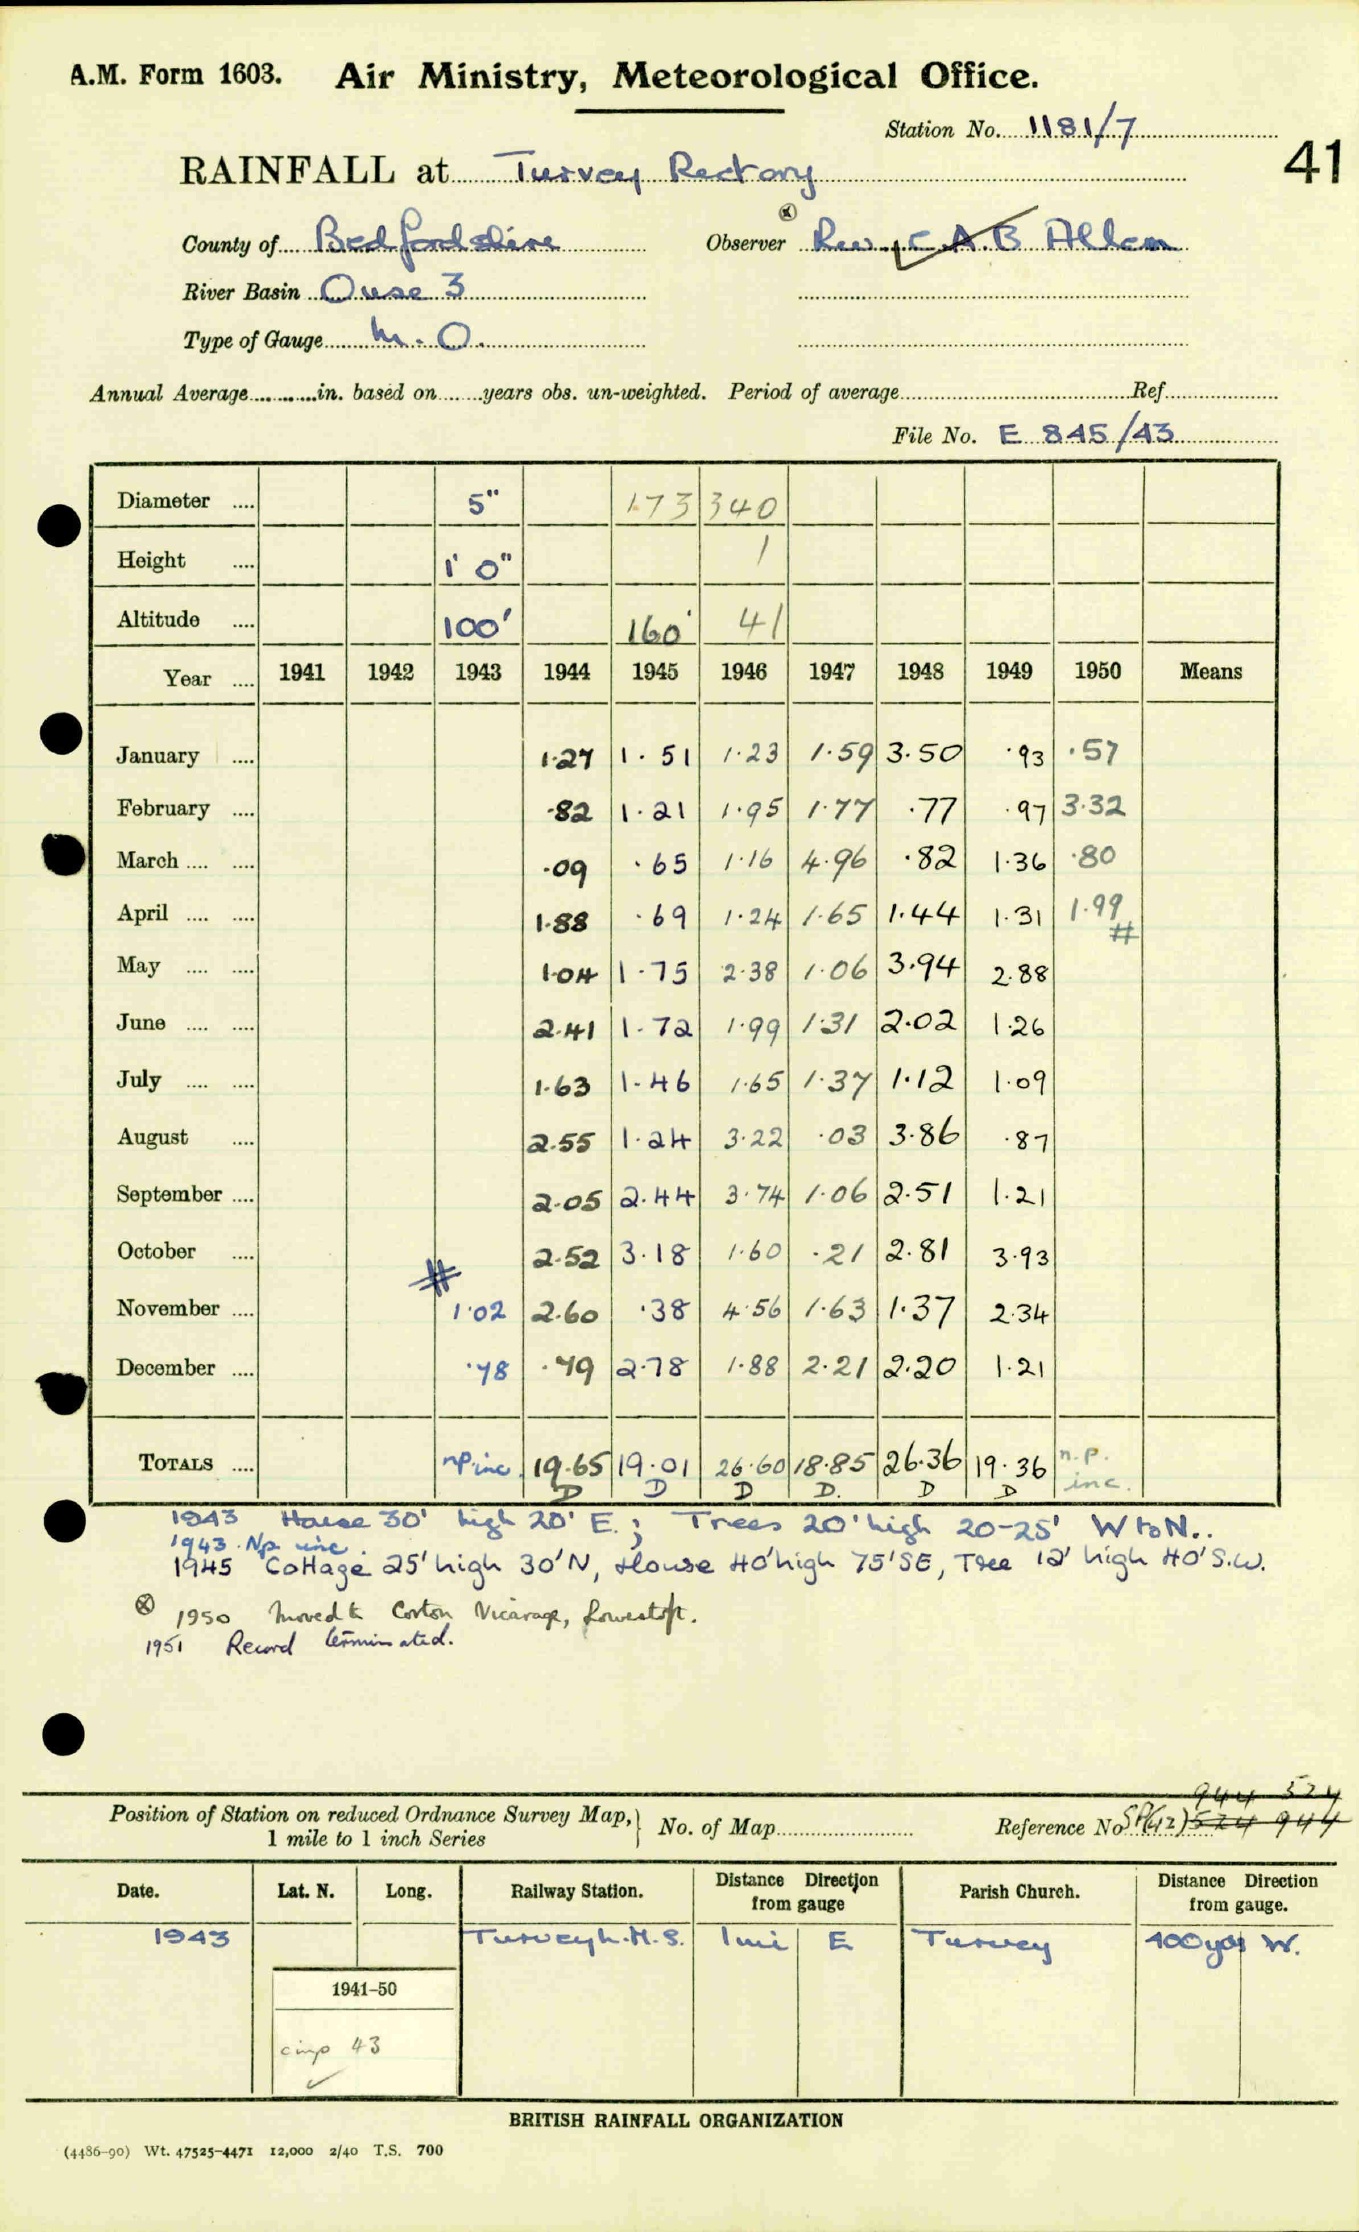 A.M. Form 1603. Air Ministry, Meteorological Office.
Station No. 1181/7
41
RAINFALL at Turvey Rectory
County of Bedfordshire Observer ⊗ Rev. C.A.B Allen
River Basin Ouse 3
Type of Gauge M.O.
Annual Average in. based on years obs. un-weighted. Period of average Ref
File No. E 845/43
Diameter 5" 173 340
Height 1' 0" 1
Altitude 100' 160' 41
Year 1941 1942 1943 1944 1945 1946 1947 1948 1949 1950 Means
January 1.27 1.51 1.23 1.59 3.50 .93 .57
February .82 1.21 1.95 1.77 .77 .97 3.32
March .09 .65 1.16 4.96 .82 1.36 .80
April 1.88 .69 1.24 1.65 1.44 1.31 1.99 #
May 1.04 1.75 2.38 1.06 3.94 2.88
June 2.41 1.72 1.99 1.31 2.02 1.26
July 1.63 1.46 1.65 1.37 1.12 1.09
August 2.55 1.24 3.22 .03 3.86 .87
September 2.05 2.44 3.74 1.06 2.51 1.21
October 2.52 3.18 1.60 .21 2.81 3.93
#
November 1.02 2.60 .38 4.56 1.63 1.37 2.34
December .78 .79 2.78 1.88 2.21 2.20 1.21
TOTALS np.inc. 19.65 19.01 26.60 18.85 26.36 19.36 n.p.
D D D D. D D inc.
1943 House 30' high 20' E.; Trees 20' high 20-25' W to N..
1943. Np inc.
1945 Cottage 25' high 30' N, House 40' high 75' SE, Tree 12' high 40' S.W.
⊗ 1950 Moved to Corton Vicarage, Lowestoft.
1951 Record terminated.
944 524
Position of Station on reduced Ordnance Survey Map, 1 mile to 1 inch Series No. of Map Reference No SP(42) 524 944
Date. Lat. N. Long. Railway Station. Distance Direction from gauge Parish Church. Distance Direction from gauge.
1943 Turvey L.M.S. 1mi E Turvey 400yds W.
1941-50
cinp 43
BRITISH RAINFALL ORGANIZATION
(4486-90) Wt. 47525-4471 12,000 2/40 T.S. 700